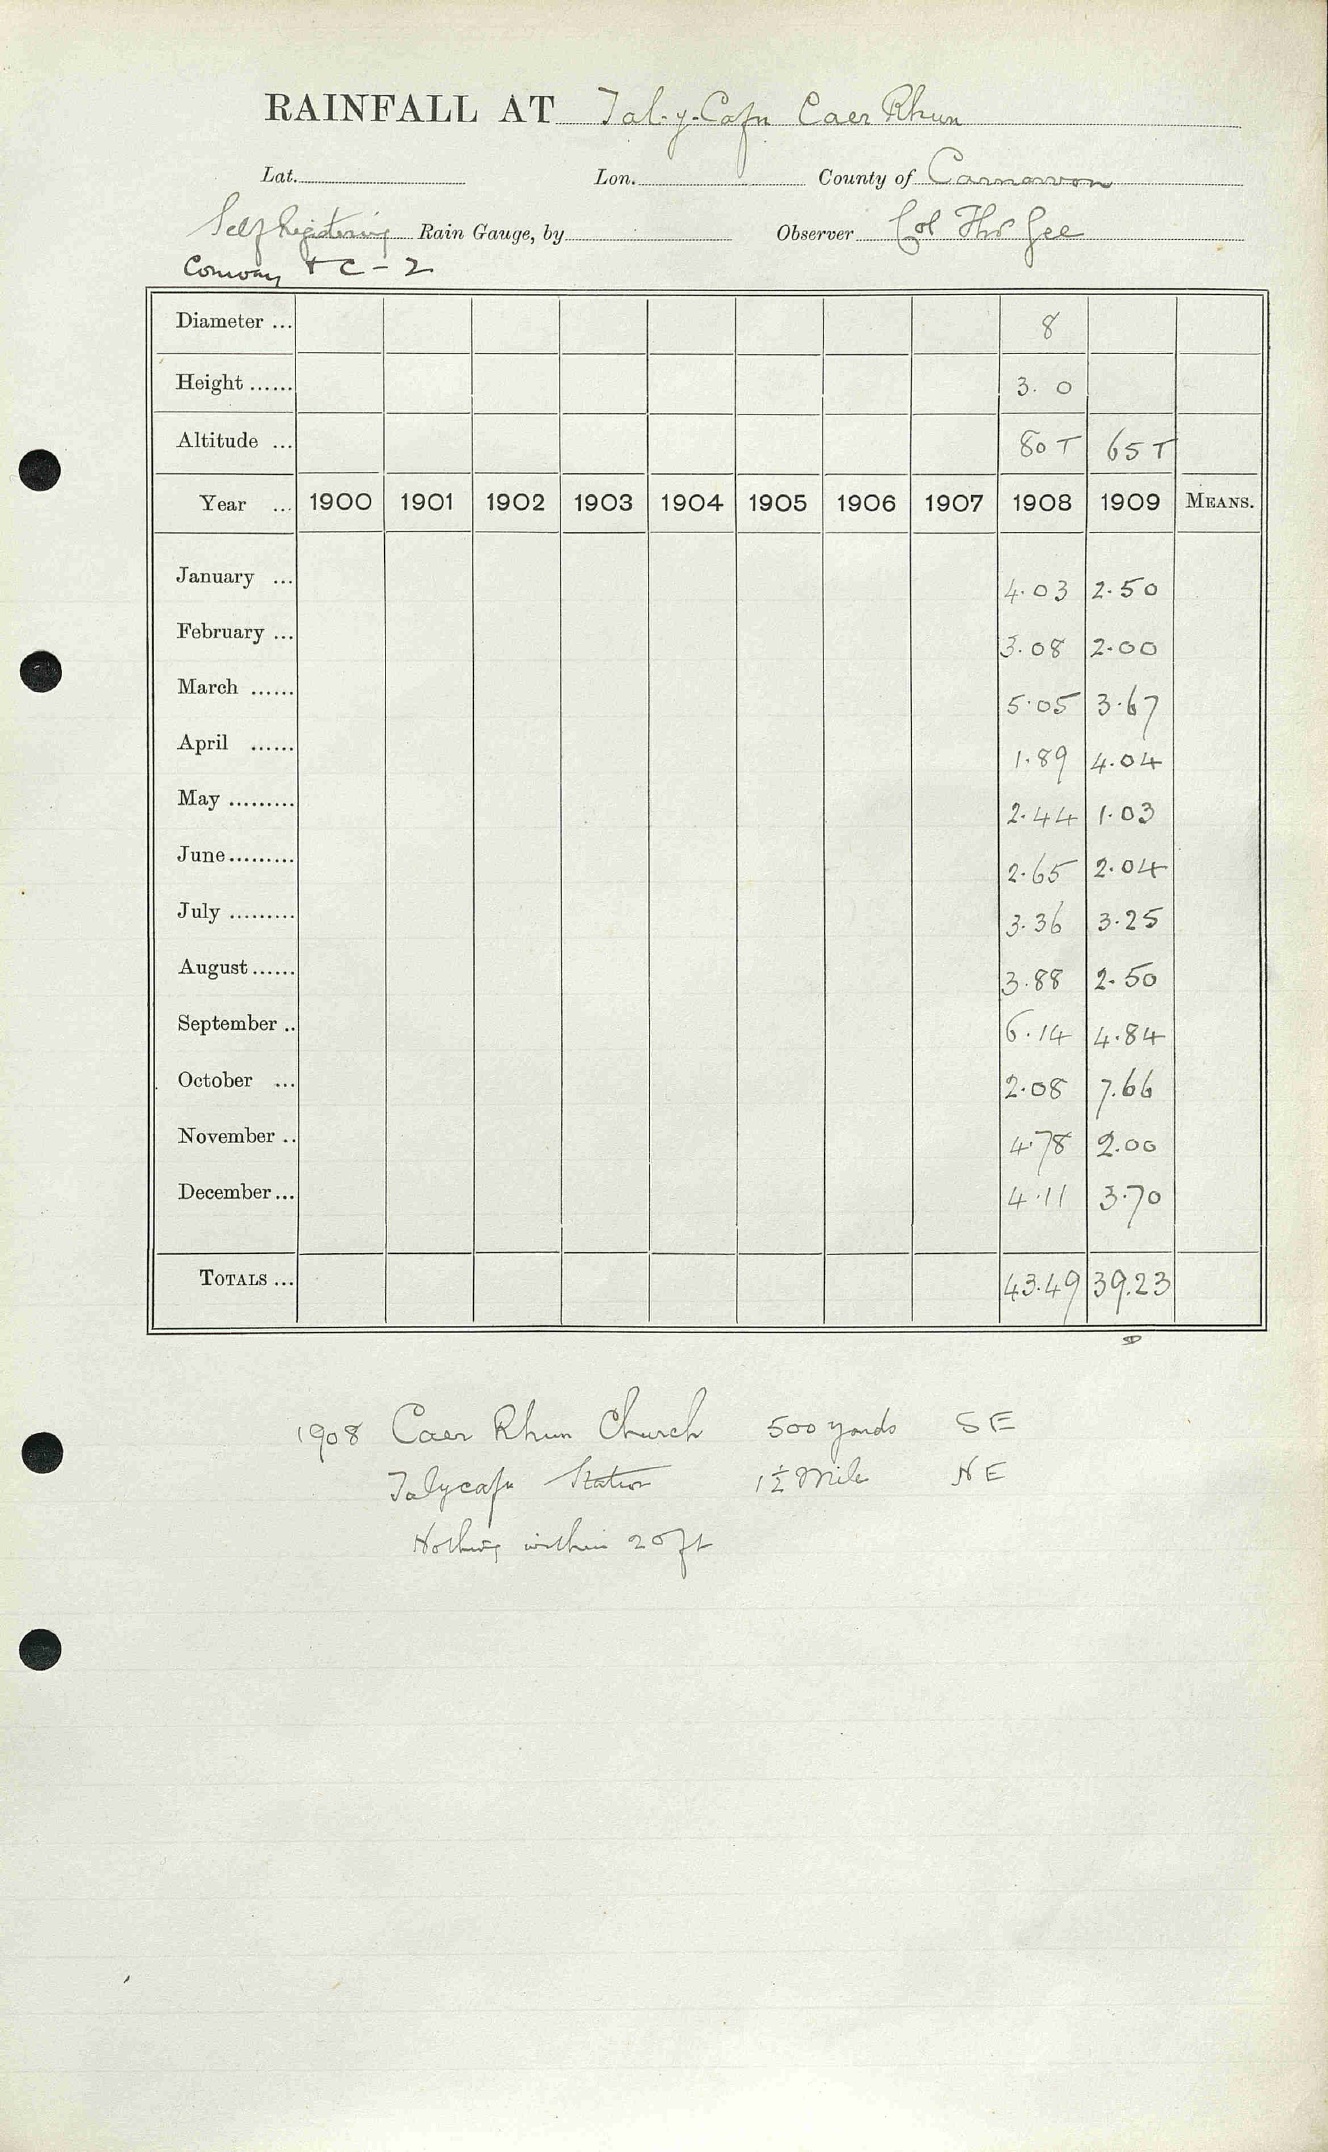 RAINFALL AT Tal-y-Cafn Caer Rhun
Lat. Lon. County of Carnarvon
Self Registering Rain Gauge, by Observer Col Thos Gee
Conway & C - 2
Diameter ... 8
Height ...... 3. 0
Altitude ... 80 T 65 T
Year ... 1900 1901 1902 1903 1904 1905 1906 1907 1908 1909 MEANS.
January ... 4.03 2.50
February ... 3.08 2.00
March ...... 5.05 3.67
April ...... 1.89 4.04
May ......... 2.44 1.03
June ......... 2.65 2.04
July ......... 3.36 3.25
August ...... 3.88 2.50
September .. 6.14 4.84
October ... 2.08 7.66
November .. 4.78 2.00
December ... 4.11 3.70
TOTALS ... 43.49 39.23
1908 Caer Rhun Church 500 yards SE
Talycafn Station 1½ Mile NE
Nothing within 20 ft